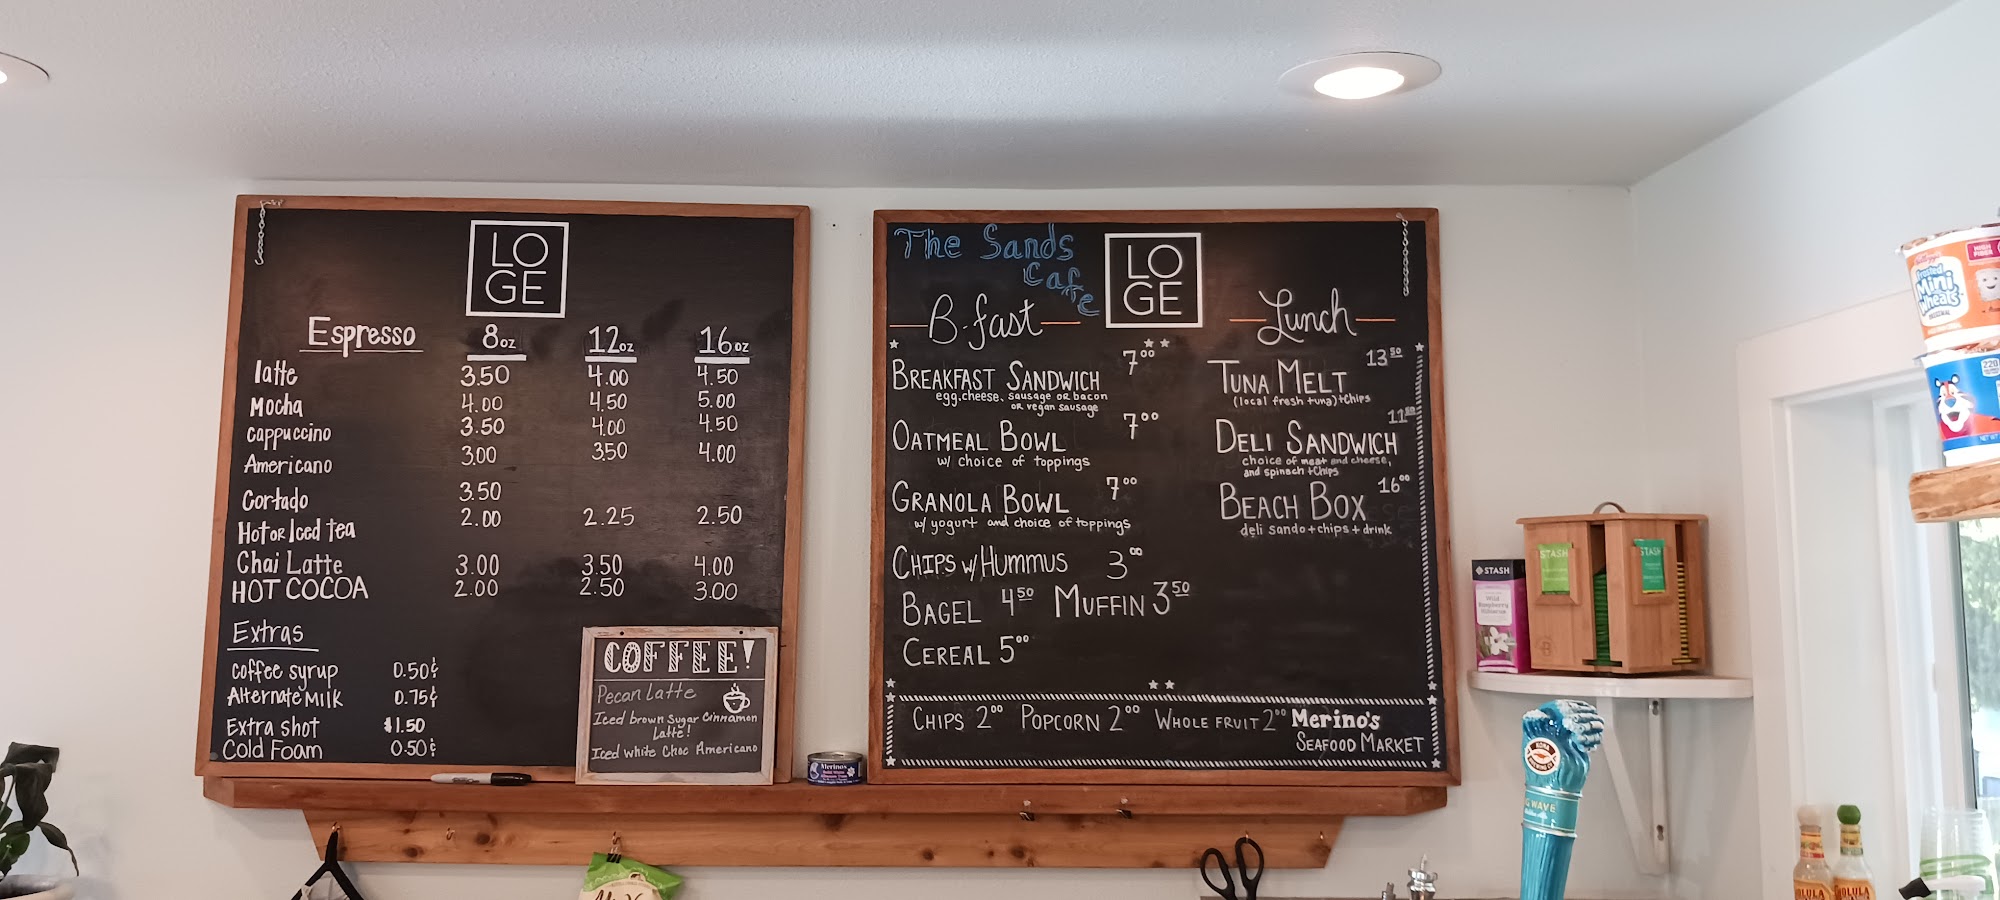 LO
GE
Espresso 8oz 12oz 16oz
latte 3.50 4.00 4.50
Mocha 4.00 4.50 5.00
cappuccino 3.50 4.00 4.50
Americano 3.00 3.50 4.00
Cortado 3.50
Hot or Iced tea 2.00 2.25 2.50
Chai Latte 3.00 3.50 4.00
HOT COCOA 2.00 2.50 3.00
Extras
coffee syrup 0.50¢
Alternate Milk 0.75¢
Extra shot $1.50
Cold Foam 0.50¢
COFFEE!
Pecan Latte
Iced brown Sugar Cinnamon
Latte!
Iced White Choc Americano
Merino's
The Sands
Cafe
LO
GE
B-fast
BREAKFAST SANDWICH 7⁰⁰
egg, cheese, sausage or bacon
or vegan sausage
OATMEAL BOWL 7⁰⁰
w/ choice of toppings
GRANOLA BOWL 7⁰⁰
w/ yogurt and choice of toppings
CHIPS w/ HUMMUS 3⁰⁰
BAGEL 4⁵⁰ MUFFIN 3⁵⁰
CEREAL 5⁰⁰
Lunch
TUNA MELT 13⁵⁰
(local fresh tuna) + chips
DELI SANDWICH 11⁵⁰
choice of meat and cheese,
and spinach + chips
BEACH BOX 16⁰⁰
deli sando + chips + drink
CHIPS 2⁰⁰ POPCORN 2⁰⁰ WHOLE FRUIT 2⁰⁰ Merino's
SEAFOOD MARKET
STASH
Wild
Raspberry
Hibiscus
STASH
STASH
WAVE
Kellogg's
Frosted
Mini
Wheats
ORIGINAL
HIGH
FIBER
220
NET WT
CHOLULA
CHOLULA